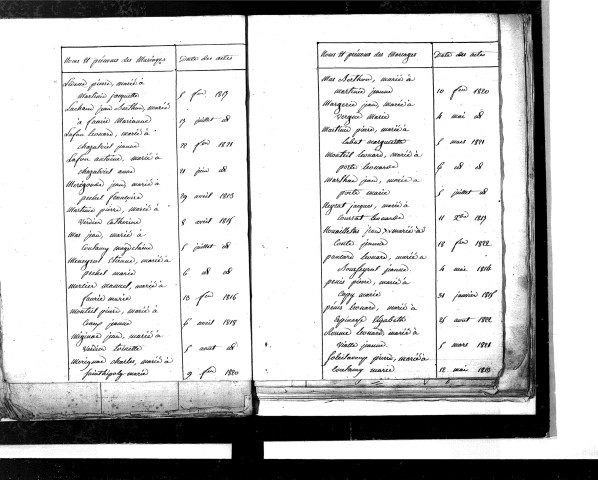 Noms et prénoms des Mariages Date des actes
Léonard pierre, marié à
martinie jacquette 5 fer 1817
Lachaud jean Berthon, marié
à faurie Marianne 17 juillet d8
Lafon léonard, marié à
chazalviel jeanne 22 fer 1821
Lafon antoine, marié à
chazalviel anne 21 juin d8
Merigonde jean, marié à
pechel françoise 29 avril 1813
Martinie pierre, marié à
Verdier Catherine 8 avril 1815
Mas jean, marié à
coulaury magdelaine 5 juillet d8
Maneyrol Etienne, marié à
pechel marie 6 d8 d8
Mercier Manuel, marié à
faurie marie 13 fer 1816
Monteil pierre, marié à
Couny jeanne 6 avril 1818
Mizinac jean, marié à
Verdier Toinette 5 aout d8
Merignac charles, marié à
Sainthipoly marie 9 fer 1820
Noms et prénoms des Mariages Date des actes
Mas Berthon, marié à
martinie jeanne 10 fer 1820
Margerie jean, marié à
Vergne Marie 4 mai d8
Martinie pierre, marié à
Labat marguerite 5 mars 1821
Monteil léonard, marié à
porte léonarde 6 d8 d8
Marthon jean, marié à
porte marie 5 juillet d8
Neyrat jacques, marié à
Coursat léonarde 11 Xbre 1813
jean marié à
Coute jeanne 18 fer 1822
pancard léonard, marié à
Soufleyrat jeanne 4 mai 1814
penis pierre, marié à
Copy marie 31 janvier 1815
penis léonard, marié à
Espinasse Elizabeth 25 aout 1822
Roume léonard, marié à
Vialle jeanne 5 mars 1821
Soleilavoup pierre, marié à
Coulaury marie 12 mai 1813